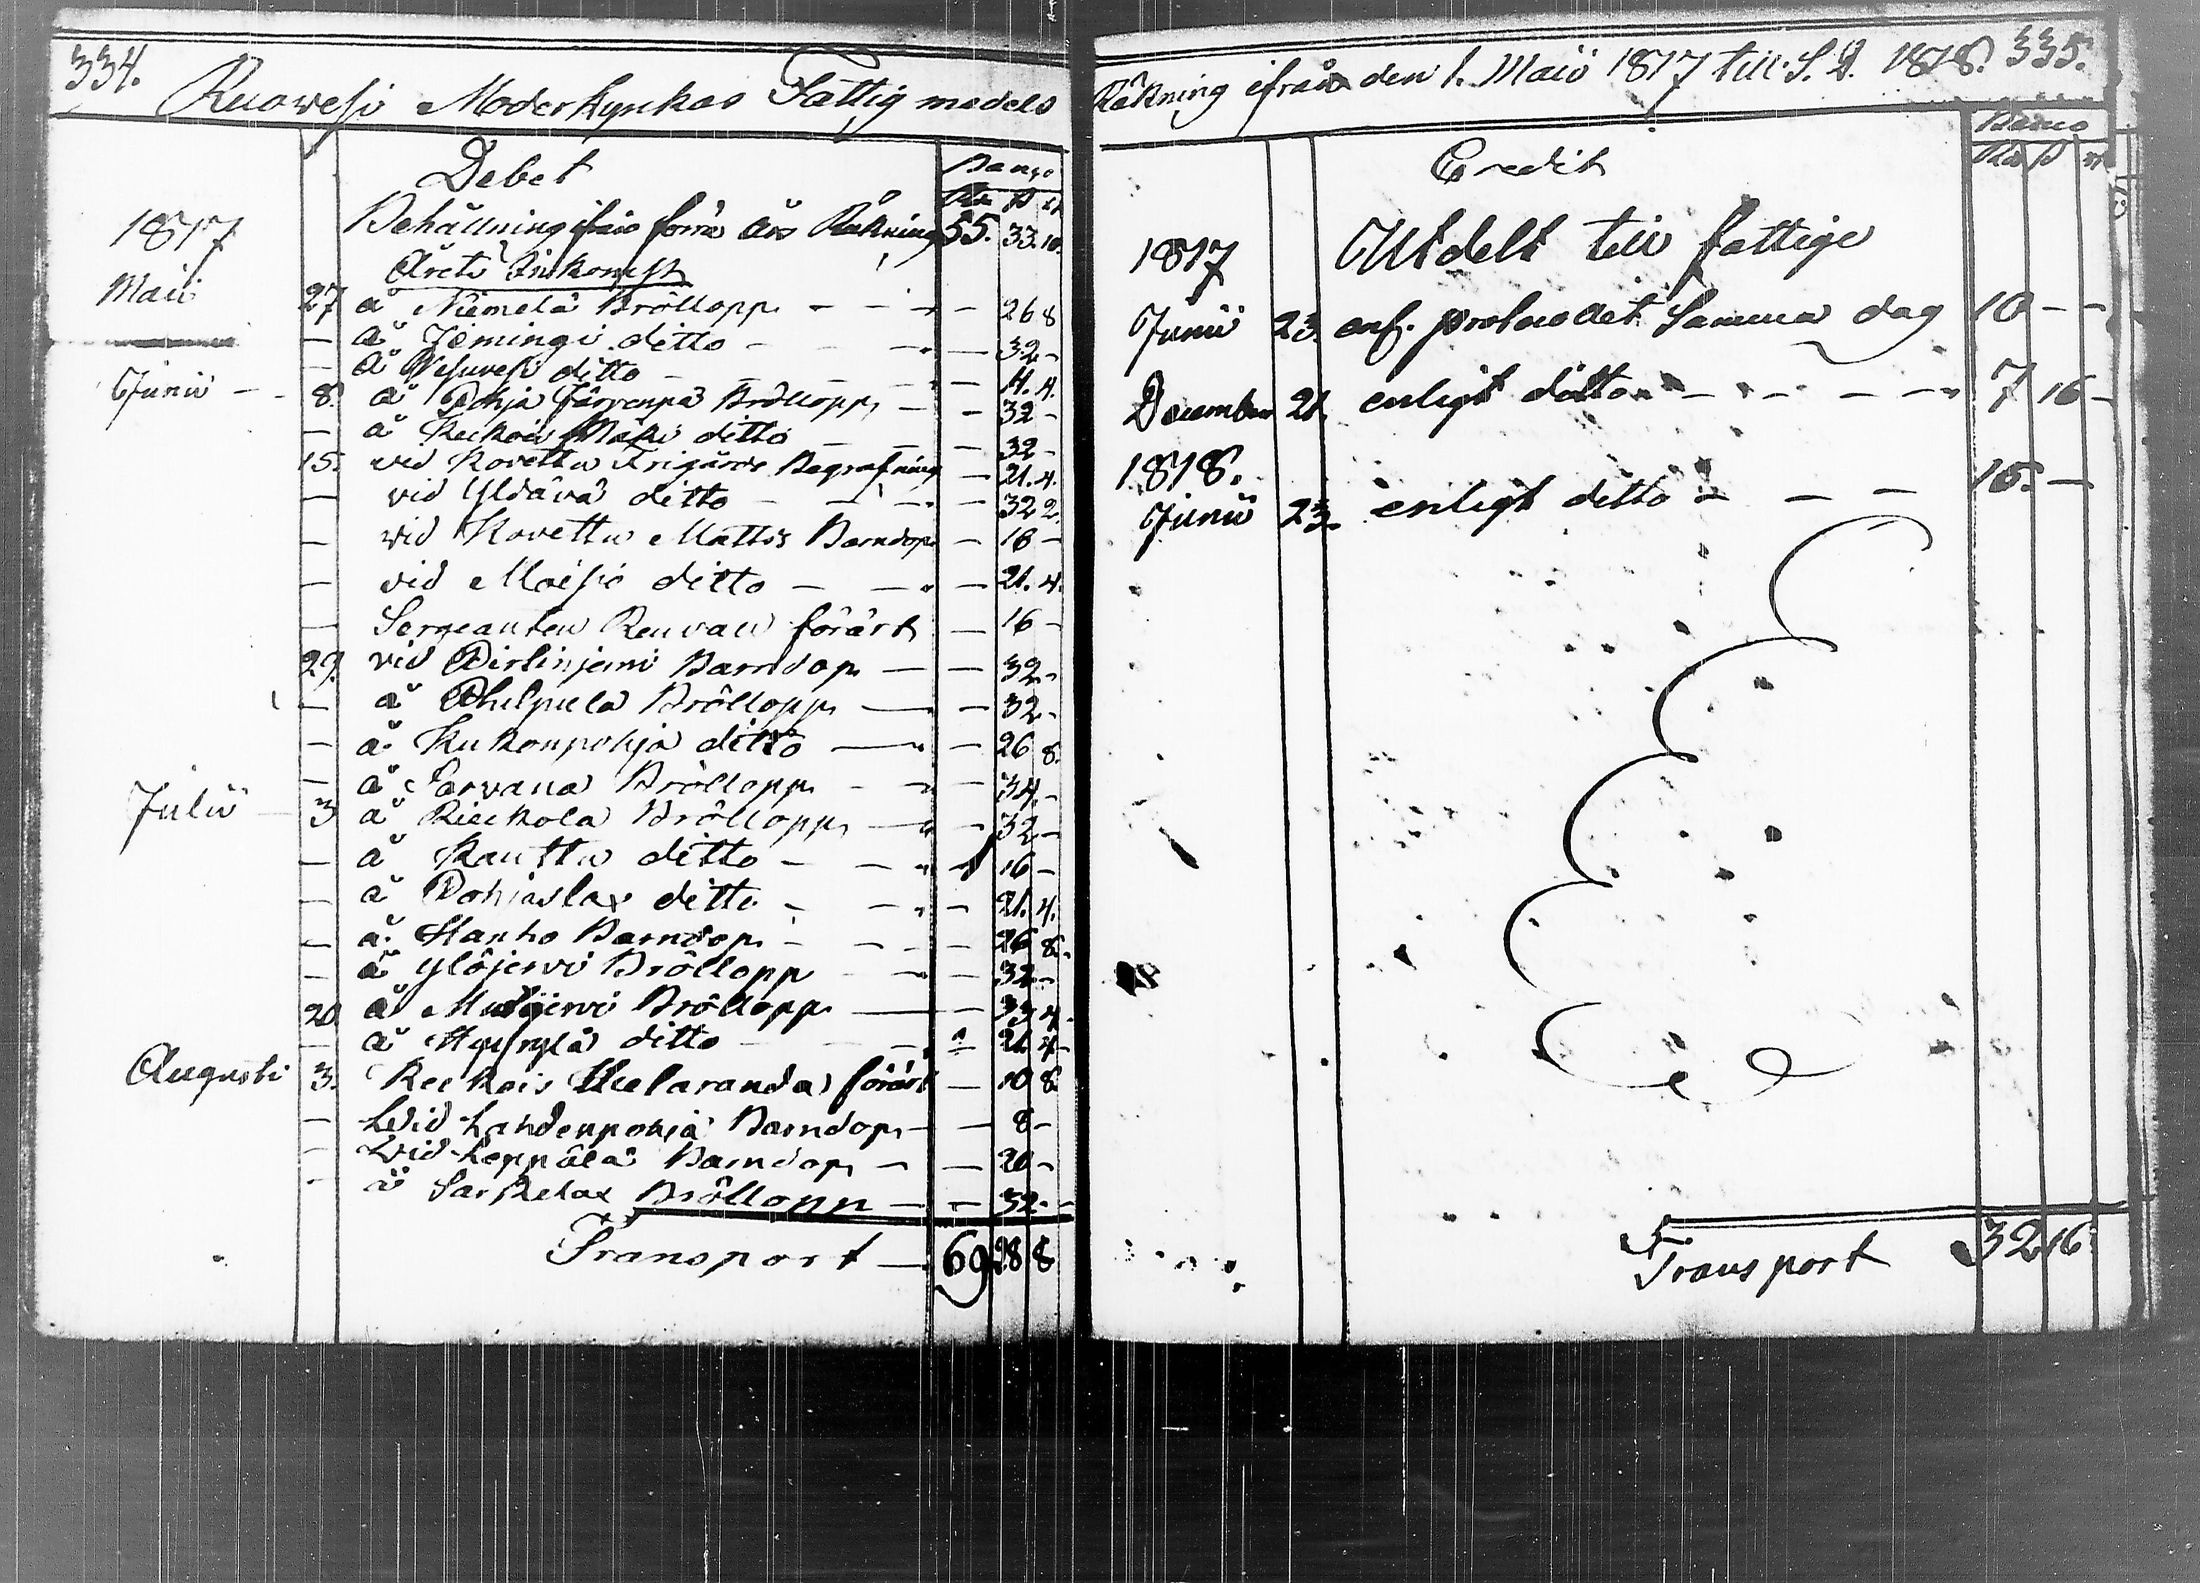 334.
Ruowesi Moderkyrkas Fattig medels
Debet
Banco
Rd ß rt
1817
Behållning ifrån förra års Räkning 55. 33. 10.
Årets Inkomst
Maii 27 å Niemelä Bröllopp - - - 26 8
- å Jämingi ditto - - - 32 -
- å Wesuvesi ditto - - - 4.
Junii - - 8. å Pohja Järvenpä Bröllopp - - 32 -
- å Keckoi Mäki ditto - - 32 -
15. vid Rovettu Begrafning - 21. 4.
- vid Ylävä ditto - - - 32 2.
- vid Kovettu Mattis Barndop - 16 -
- vid Moisio ditto - - - 21. 4.
- Sergeanten Renvall förärt - 16 -
29. vid Pirtinjemi Barndop - - 32 -
- å Philpula Bröllopp - - 32 -
- å Kukonpohja ditto - - 26 8.
- å Sarvana Bröllopp - - 34. -
Julii - 3 å Rieckola Bröllopp - - 32 -
- å Kauttu ditto - - 16 -
- å Pohjaslax ditto - - - 21. 4.
- å Hanho Barndop - - - 26 8.
- å Ylöjerwi Bröllopp - - 32 -
20. å Bröllopp - - 33 4.
- å ditto - - 21 4 -
Augusti 3. Keckois förärt - 10 8
- Wid Lahdenpohja Barndop - - 8 -
- Wid Leppälä Barndop - - 20 -
- å Sarkelax Bröllopp - - 32. -
Transport - 69 28 8
Räkning ifrån den 1. Maii 1817 till S. D. 1818. 335.
Credit
Banco
Rd ß rt
1817 Utdelt till fattige
Junii 23. enl. protocollet Samma dag 10 - -
December 21. enligt ditto - - - - 7 16 -
1818.
Junii 23. enligt ditto - - - 15. -
Transport 32 16